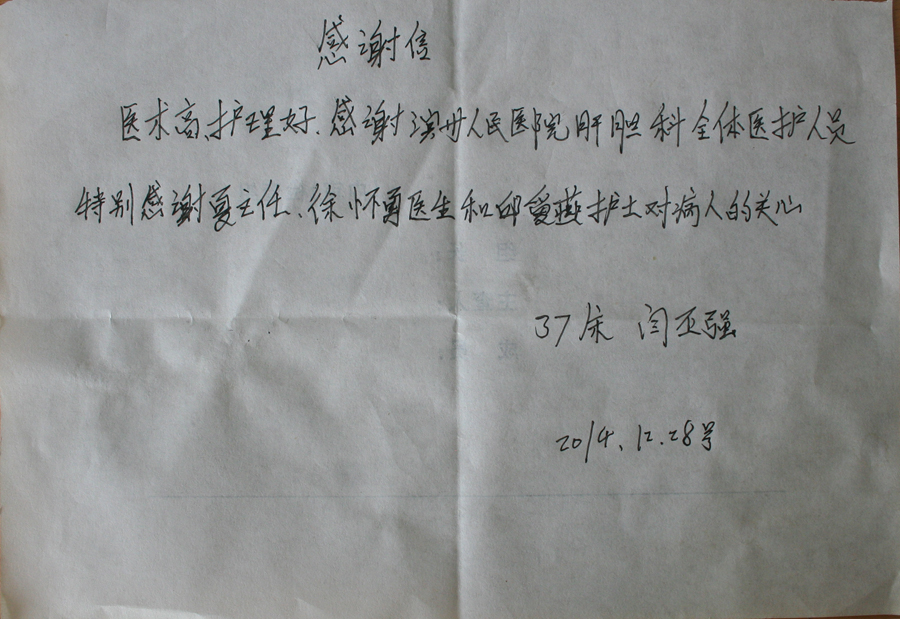 感谢信
医术高、护理好、感谢滨州人民医院肝胆科全体医护人员
特别感谢夏主任、徐怀勇医生和邱曼燕护士对病人的关心
37床 闫正强
2014.12.28号